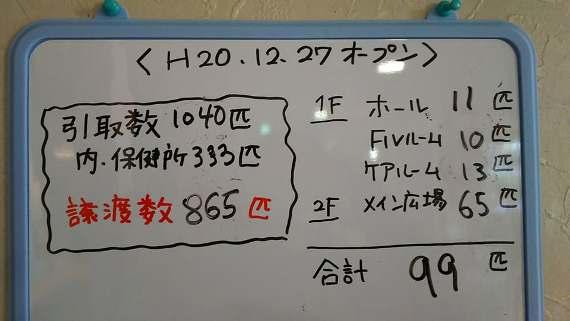 〈H20.12.27オープン〉
引取数 1040匹
内、保健所 333匹
譲渡数 865匹
1F ホール 11匹
FIVルーム 10匹
ケアルーム 13匹
2F メイン広場 65匹
合計 99匹